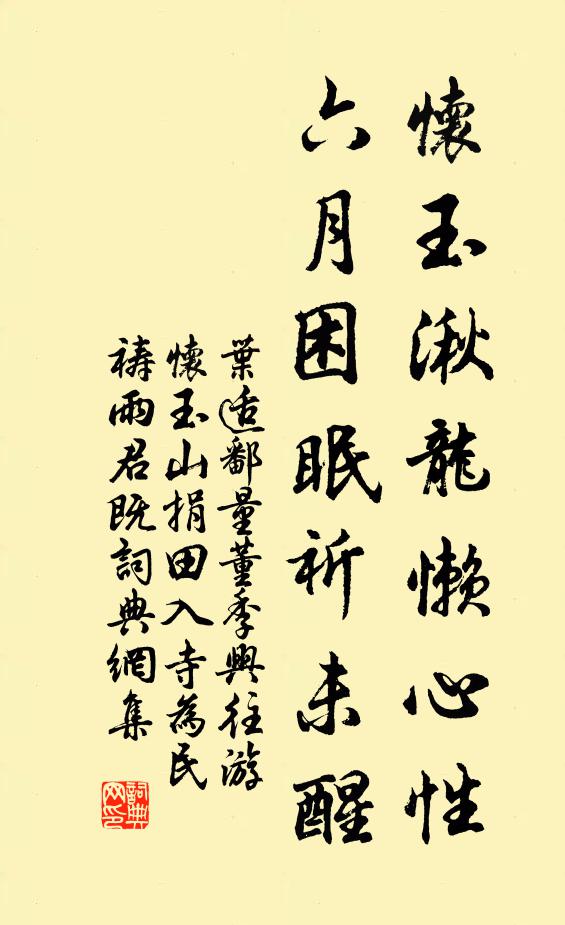 懷玉湫龍懶心性
六月困眠祈未醒
葉适鄱量董季興往游
懷玉山捐田入寺為民
禱雨君既詞典網集
詞典網印